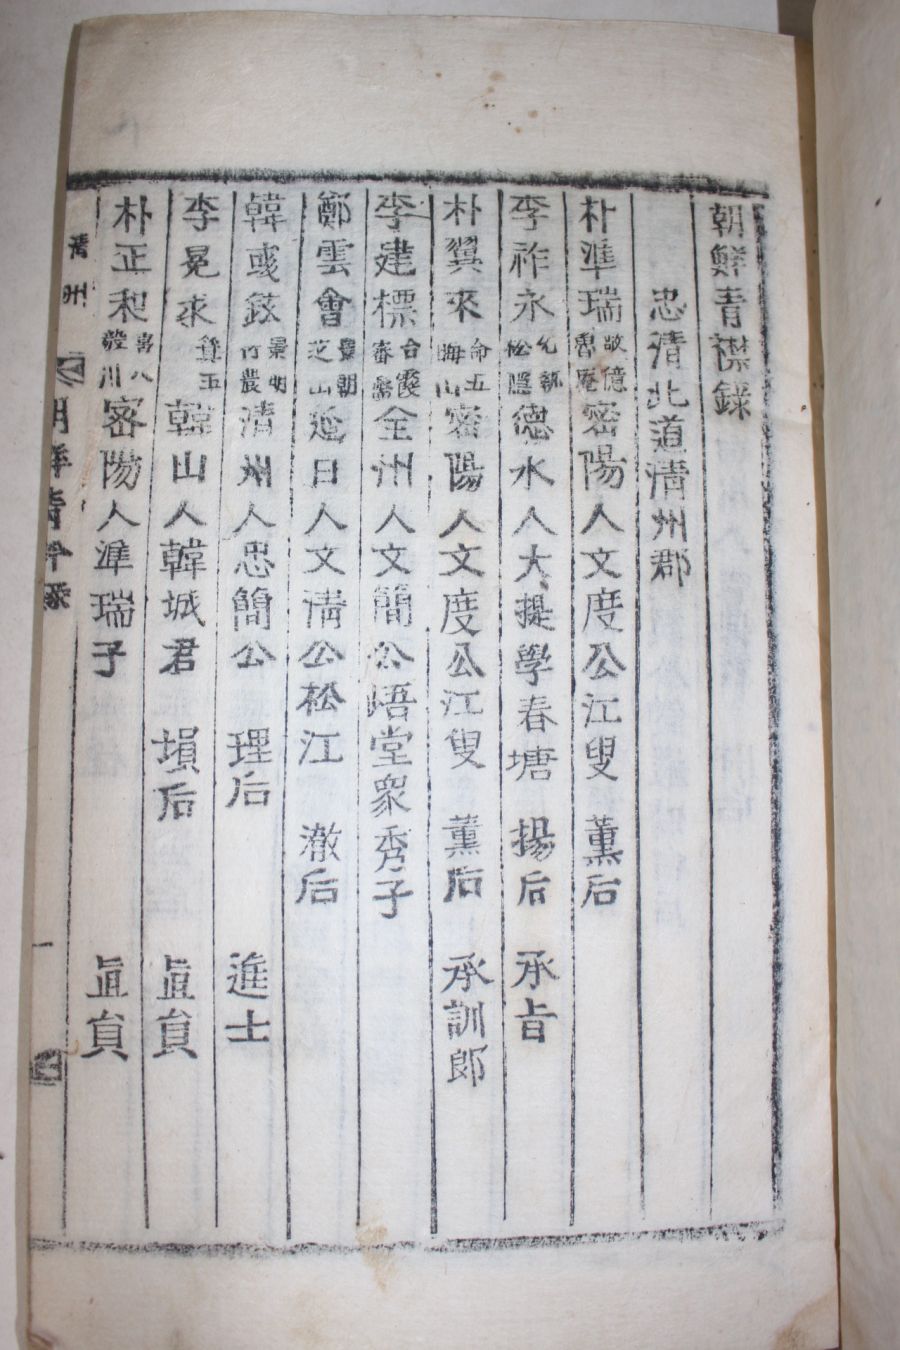 朝鮮青襟錄
忠清北道清州郡
朴準瑞 敬億 魯庵 密陽人文度公江叟 薰后
李祚永 允執 松隱 德水人大提學春塘 揚后 承旨
朴翼來 命五 晦山 密陽人文度公江叟 薰后 承訓郎
李建標 台霞 春齋 全州人文簡公峿堂象秀子
鄭雲會 景朝 芝山 延日人文清公松江 澈后
韓彧鉉 景明 竹農 清州人忠簡公 理后 進士
李冕求 聲玉 韓山人韓城君 塤后 眞貟
朴正和 毅川 密陽人準瑞子 眞貟
清州 朝鮮青衿錄 一